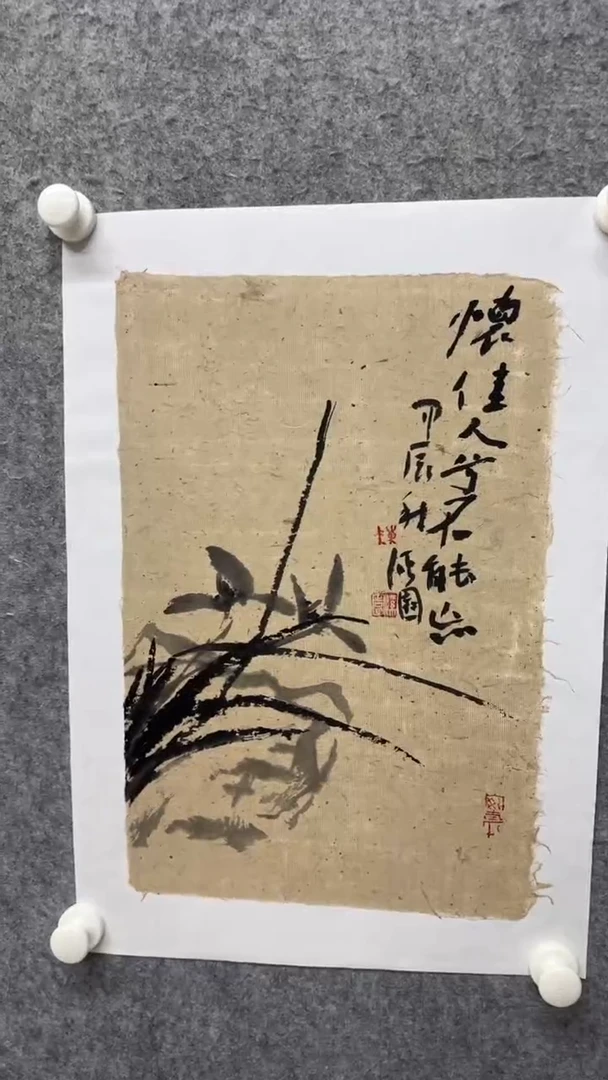 懷佳人兮不能忘
甲辰秋
園